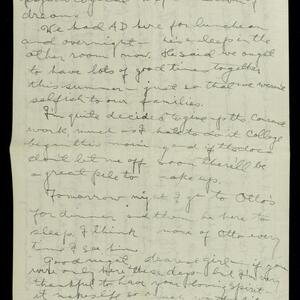 dreams.
We had AD here for luncheon
and overnight — he's asleep in the
other room now. He said we ought
to have lots of good times together
this summer — just so that we weren't
selfish to our families.
I'm quite decided to give up the
work, much as I hate to do it. College
began this morning and if the docs
don't let me off soon there'll be
a great pile to make up.
Tomorrow night I go to Otto's
for dinner and then he here to
sleep. I think more of Otto every
time I see him
Goodnight dearest girl — if you
were only here these days — but I'm very
thankful to have your loving spirit
it makes